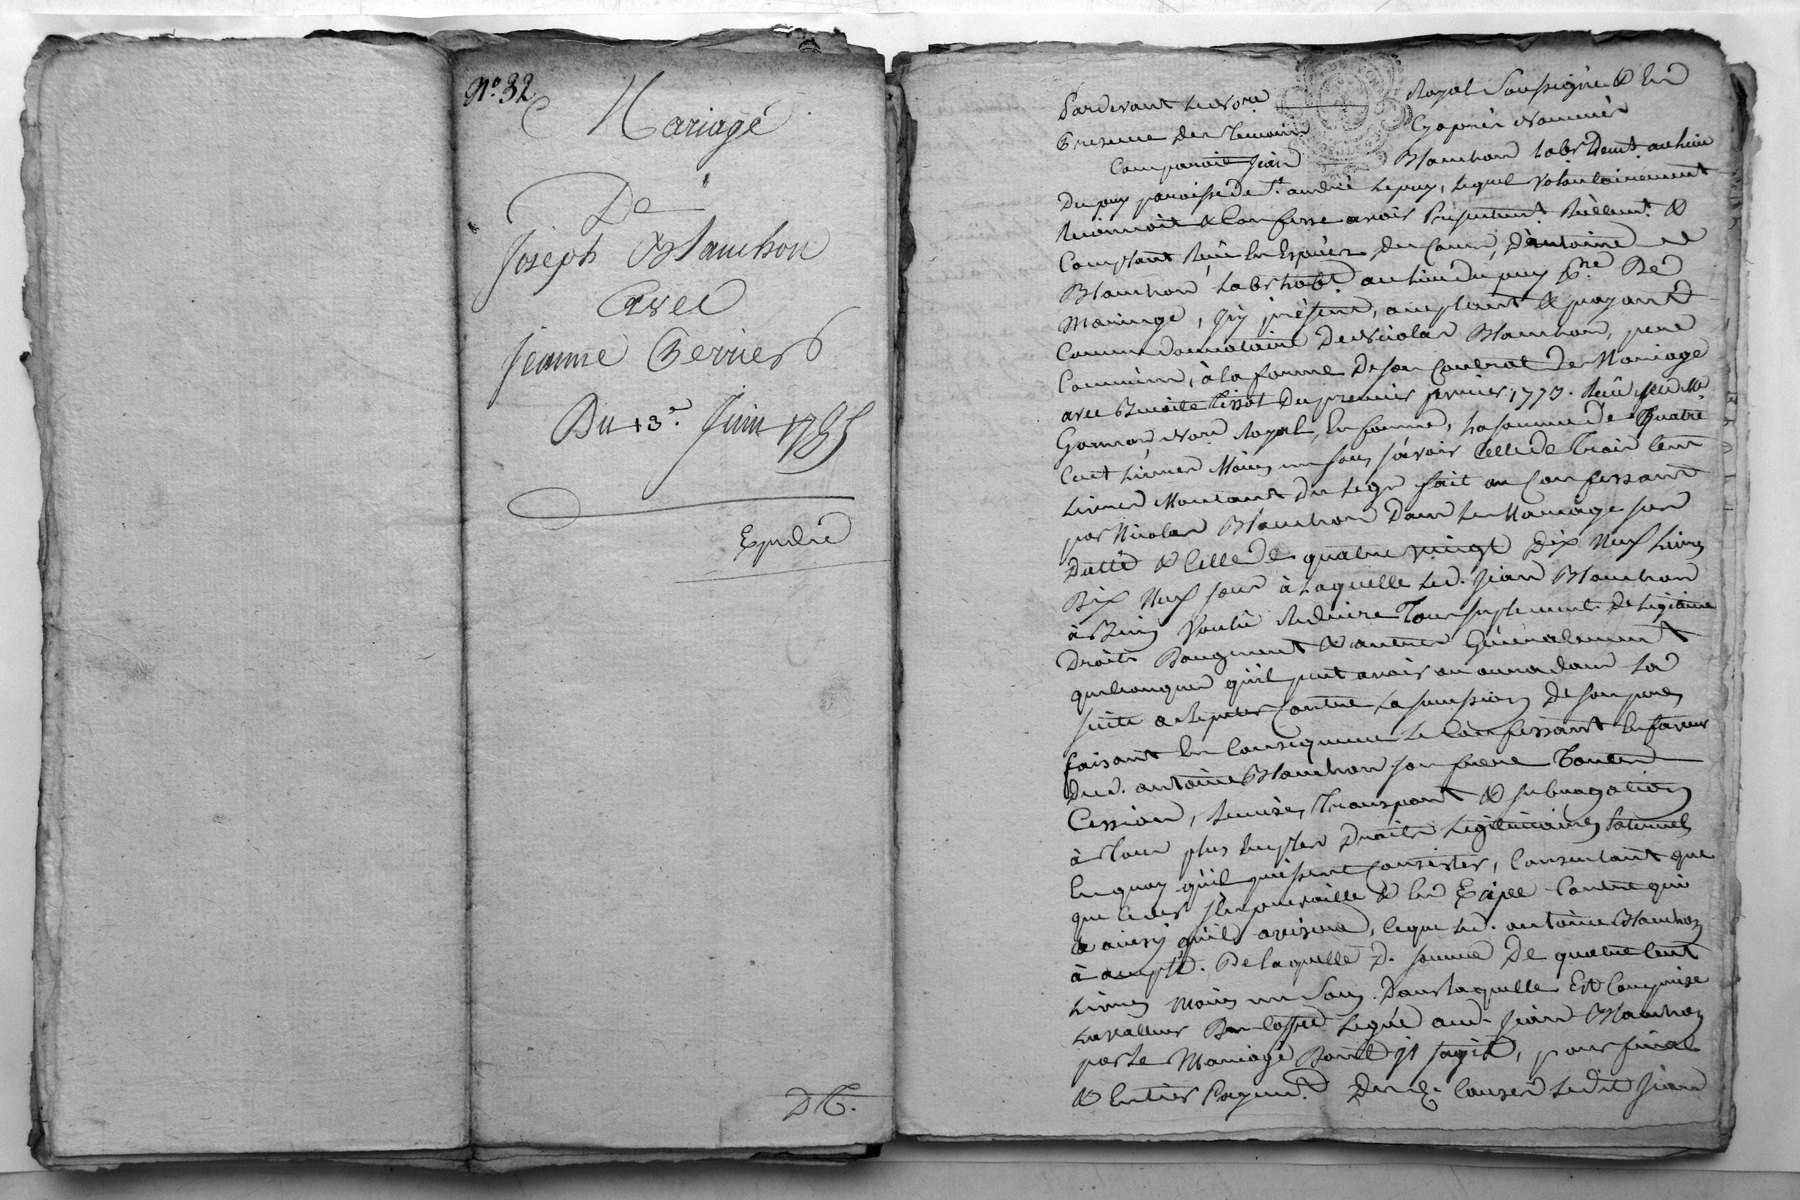 N.º 32
Mariage
De
Joseph Blanchon
Avec
Jeanne Perrier
Du 13.e Juin 1785
Expedié
Pardevant Le No.re Royal Soussigné & En
Presence des Temoins Cyaprès Nommés
Comparoit Jean Blanchon Lab.r Demt. au lieu
Du puy paroisse de St. andré Le puy, Lequel Volontairement
Reconnoit & Confesse avoir Présentemt. Réellemt. &
Comptant Reçû En Espèces du Cours, D'antoine
Blanchon Lab.r habt. au lieu du puy Pne. De
Mariage, Icy présent, acceptant & payant
Comme donnataire De Nicolas Blanchon, pere
Commun, à la forme De son Contrat De Mariage
avec Benoite Tissot Du premier fevrier 1773. Reçû
No.re Royal, En forme, La somme De Quatre
Cent Livres Moins un sou, sçavoir Celle De Trois Cent
Livres Montant Du Legs fait au Confessant
par Nicolas Blanchon Dans Le Mariage sus
Datté & Celle De quatre vingt Dix Neuf Livres
Dix Neuf sous à Laquelle Led. Jean Blanchon
à Bien Voulû Reduire Tous suplement De Legitime
Droits D'augment & autres Généralement
quelconques qu'il peut avoir ou aura dans La
suite a Repeter Contre La succession De son pere
faisant En Consequence Le Confessant En faveur
Dud. antoine Blanchon son frere Toutes
Cession, Remise, Transport & subrogation
à Tous plus Amples Droits Legitimaires Paternels
En quoy qu'ils puissent Consister, Consentant que
& ainsy qu'il avisera, Ce que Led. antoine Blanchon
à accepté. De laquelle D. somme De quatre Cent
Livres Moins un Sou. Dans laquelle Est Comprise
La valleur Du Coffre Legué aud. Jean Blanchon
par Le Mariage Dont Il s'agit, pour final
& Entier Payemt. Des d. Causes Ledit Jean